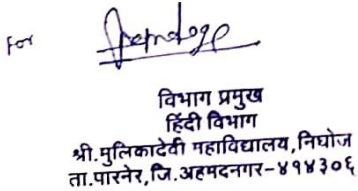 For
विभाग प्रमुख
हिंदी विभाग
श्री.मुलिकादेवी महाविद्यालय,निघोज
ता.पारनेर,जि.अहमदनगर-४१४३०६